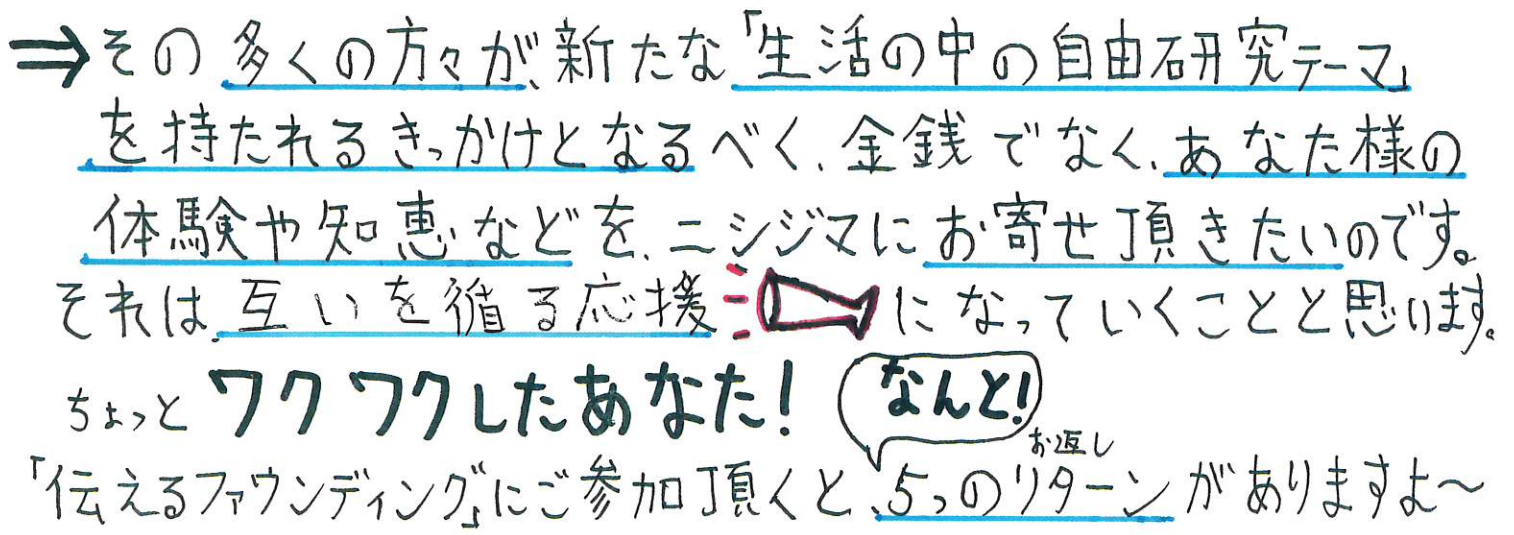 ⇒その多くの方々が、新たな「生活の中の自由研究テーマ」
を持たれるきっかけとなるべく、金銭でなく、あなた様の
体験や知恵などを、ニシジマにお寄せ頂きたいのです。
それは、互いを循る応援になっていくことと思います。
ちょっとワクワクしたあなた!
なんと!
お返し
「伝えるファウンディング」にご参加頂くと、5つのリターンがありますよ〜